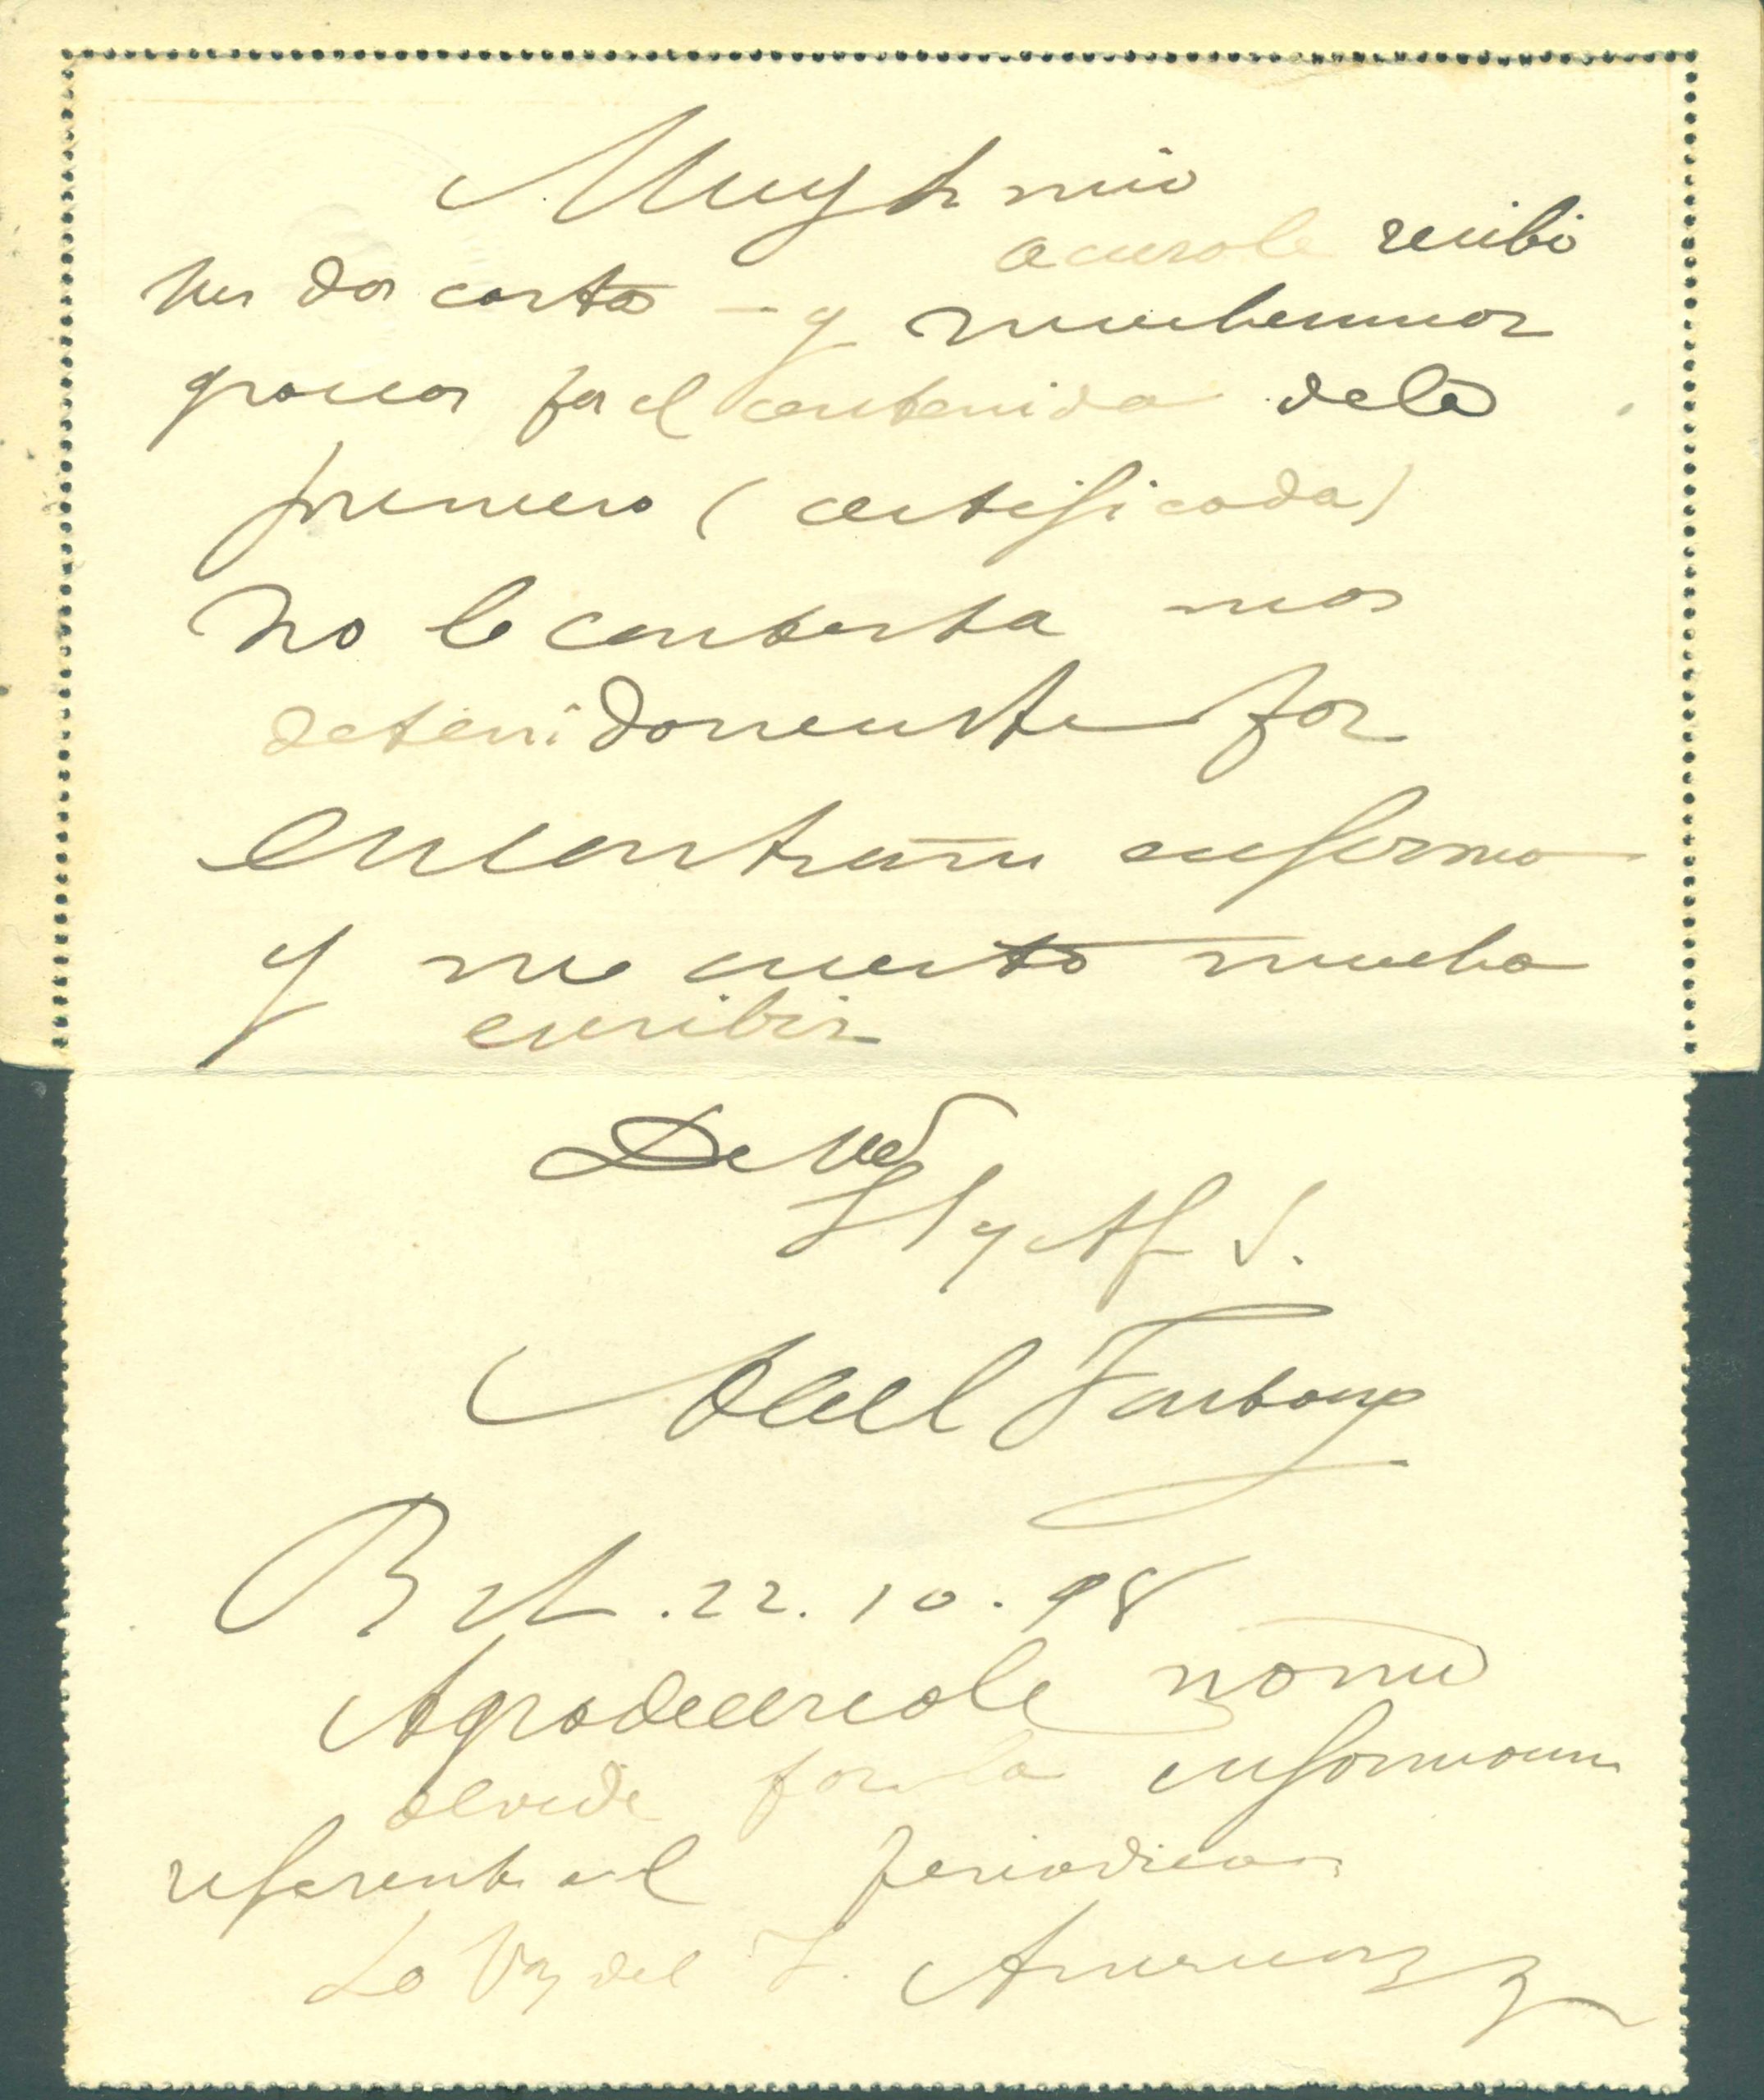 Muy Sr mio
acusole recibo
sus dos cartas — y muchisimas
gracias por el contenido de la
primera (certificada)
No le contesto mas
detenidamente por
encontrarme enfermo
y me cuesta mucho
escribir
De Vd
S S y Af S.
Abel Fontaup
22.10.98
Agradeceriale no me
olvide por la informacion
referente al periodico
La Voz del S.